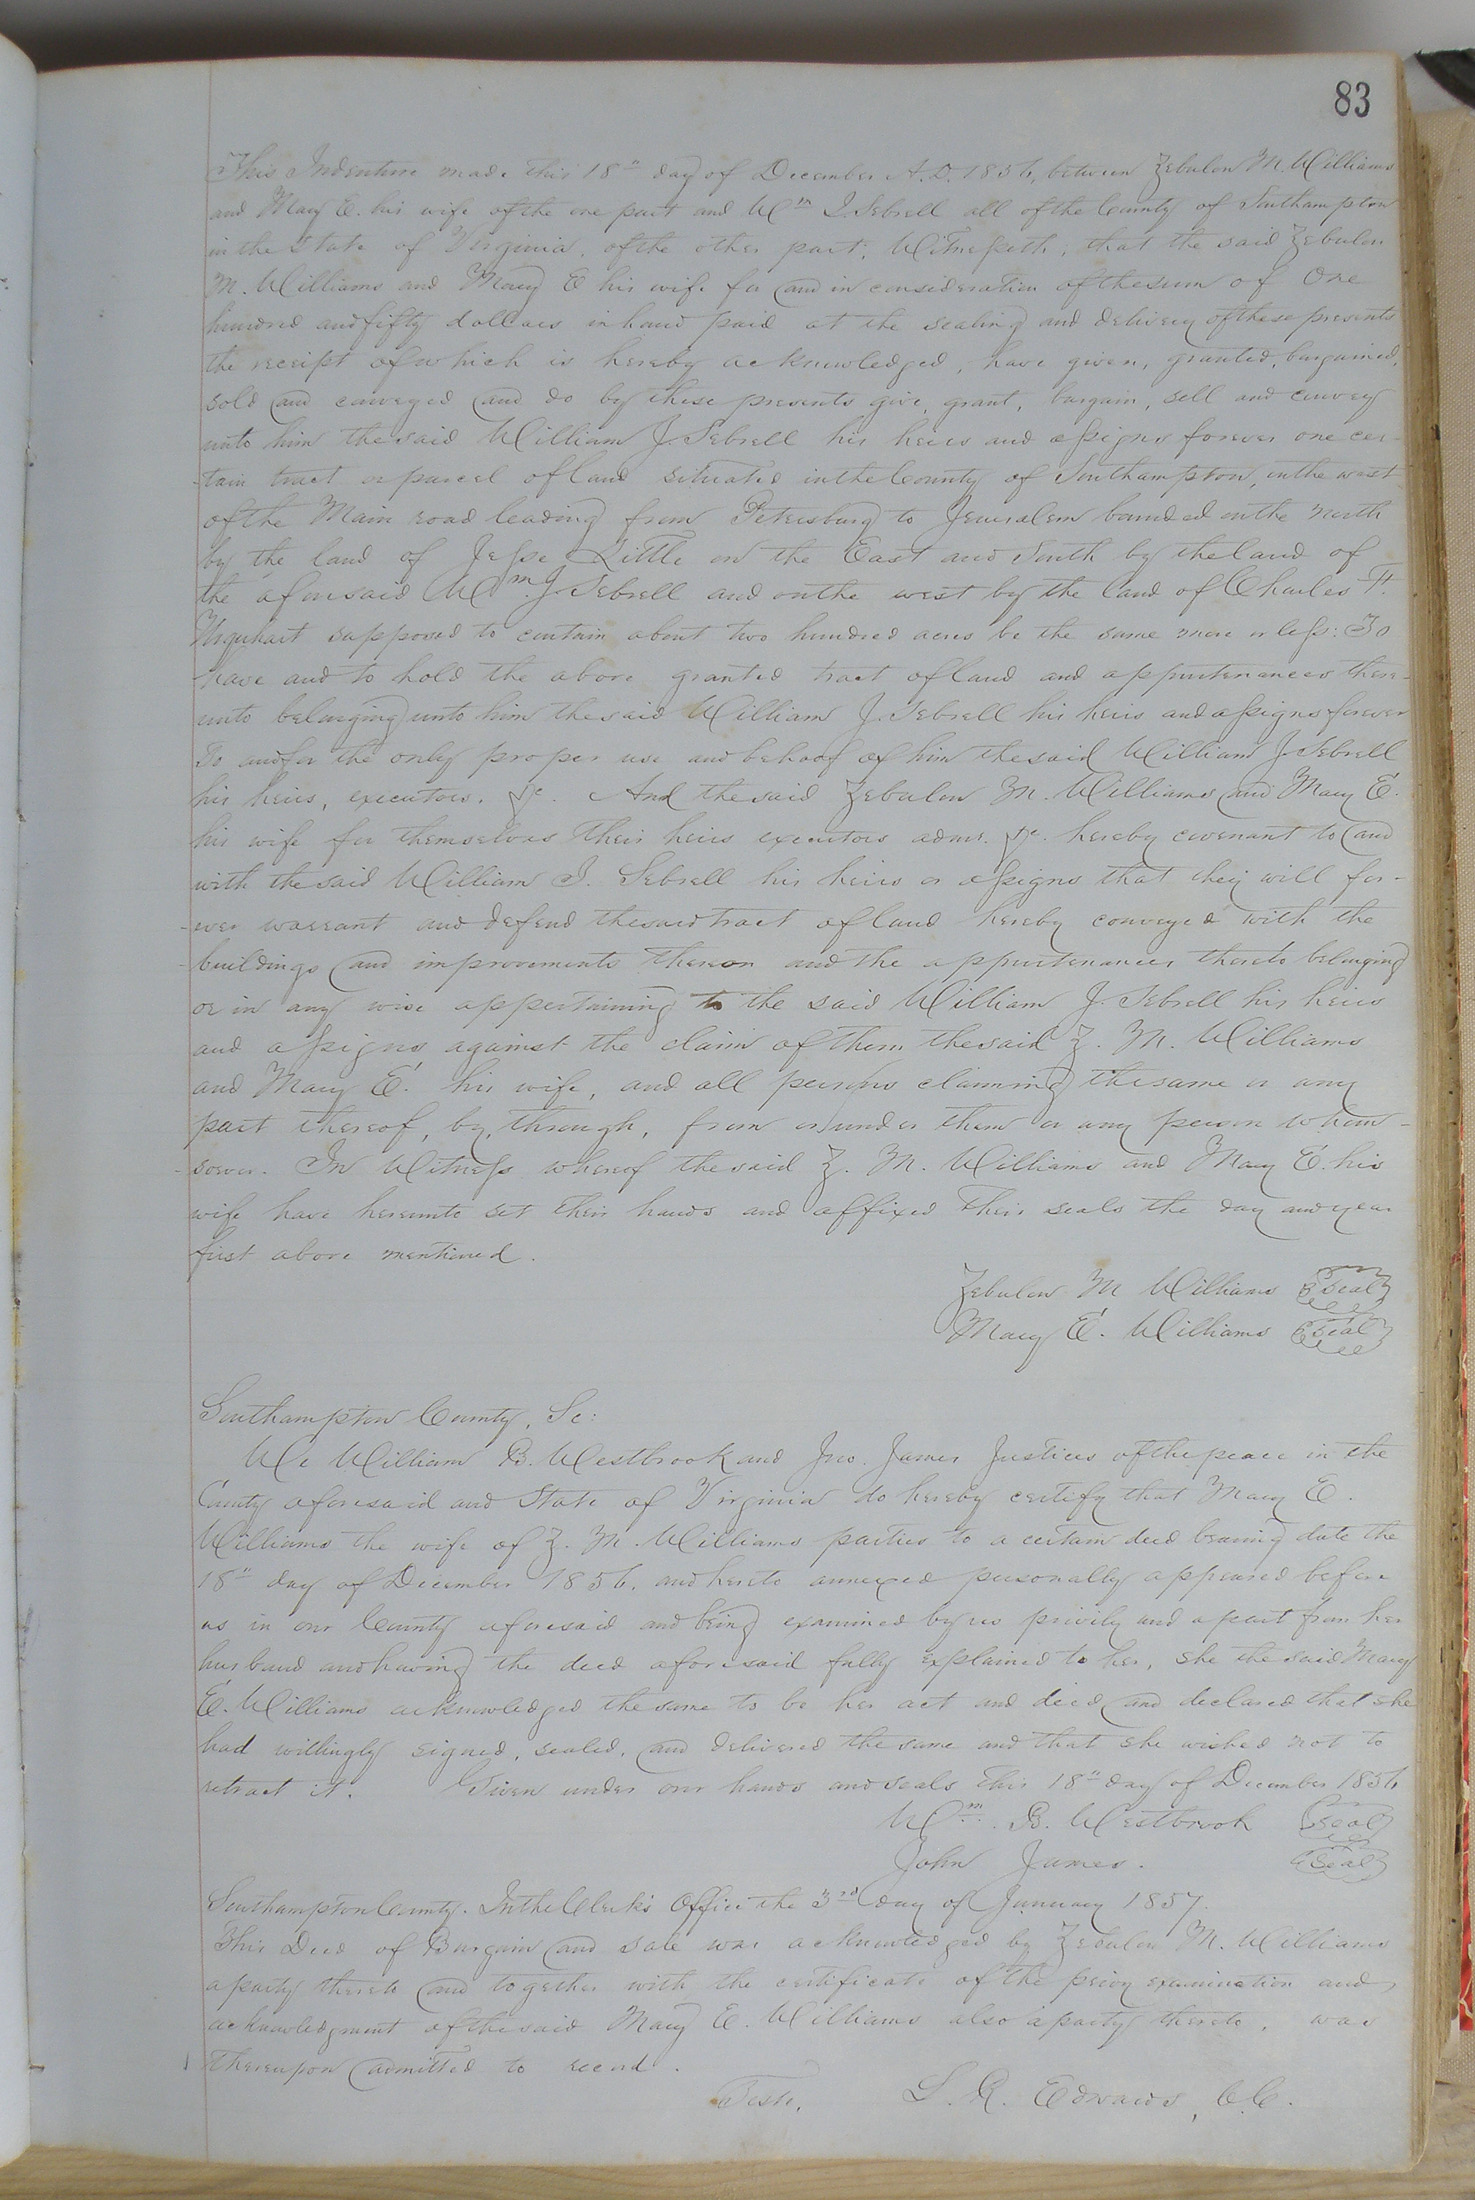 83
This Indenture made this 18" day of December A.D. 1856, between Zebulon M. Williams
and Mary E. his wife of the one part and Wm J. Sebrell all of the County of Southampton
in the State of Virginia, of the other part; Witnesseth, that the said Zebulon
M. Williams and Mary E his wife for and in consideration of the sum of One
hundred and fifty dollars in hand paid at the sealing and delivery of these presents
the receipt of which is hereby acknowledged, have given, granted, bargained,
sold and conveyed and do by these presents give, grant, bargain, sell and convey
unto him the said William J. Sebrell his heirs and assigns forever one cer-
-tain tract or parcel of land situated in the County of Southampton, on the west
of the Main road leading from Petersburg to Jerusalem bounded on the north
by the land of Jesse Little on the East and South by the land of
the aforesaid Wm. J. Sebrell and on the west by the land of Charles F.
Urquhart supposed to contain about two hundred acres be the same more or less: To
have and to hold the above granted tract of land and appurtenances there-
unto belonging unto him the said William J. Sebrell his heirs and assigns forever
To and for the only proper use and behoof of him the said William J. Sebrell
his heirs, executors, &c. And the said Zebulon M. Williams and Mary E.
his wife for themselves their heirs executors admr. &c. hereby covenant to and
with the said William J. Sebrell his heirs or assigns that they will for-
-ever warrant and defend the said tract of land hereby conveyed with the
buildings and improvements thereon and the appurtenances thereto belonging
or in any wise appertaining to the said William J. Sebrell his heirs
and assigns against the claim of them the said Z. M. Williams
and Mary E. his wife, and all persons claiming the same or any
part thereof, by, through, from or under them or any person whom-
-soever. In Witness whereof the said Z. M. Williams and Mary E. his
wife have hereunto set their hands and affixed their seals the day and year
first above mentioned.
Zebulon M Williams Seal
Mary E. Williams Seal
Southampton County, Sc:
We William B. Westbrook and Jno. James Justices of the peace in the
County aforesaid and State of Virginia do hereby certify that Mary E.
Williams the wife of Z. M. Williams parties to a certain deed bearing date the
18" day of December 1856, and hereto annexed personally appeared before
us in our County aforesaid and being examined by us privily and apart from her
husband and having the deed aforesaid fully explained to her, she the said Mary
E. Williams acknowledged the same to be her act and deed, and declared that she
had willingly signed, sealed, and delivered the same and that she wished not to
retract it. Given under our hands and seals this 18" day of December 1856
Wm. B. Westbrook Seal
John James. Seal
Southampton County. In the Clerk's Office the 3rd day of January 1857.
This Deed of Bargain and sale was acknowledged by Zebulon M. Williams
a party thereto and together with the certificate of the privy examination and
acknowledgment of the said Mary E. Williams also a party thereto, was
thereupon admitted to record.
Teste, L. R. Edwards, C.C.